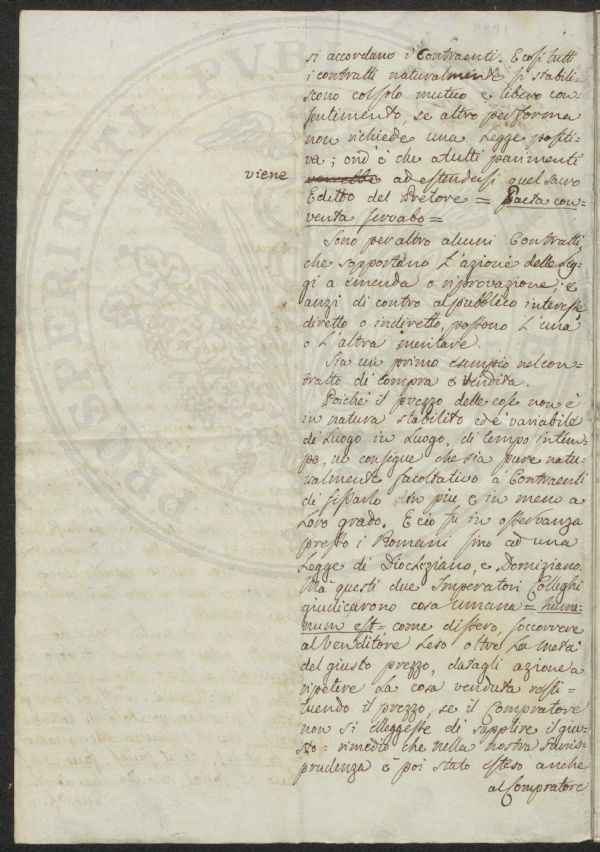 si accordano i Contraenti. E così tutti
i contratti naturalmente si stabili=
scono col solo mutuo e libero con=
sentimento, se altro per forma
non richiede una Legge positi=
va; ond'è che a tutti parimenti
viene ad estendersi quel sacro
Editto del Pretore = Pacta con=
venta servabo =
Sono per altro alcuni Contratti,
che sopportano l'azione delle Leg=
gi a emenda o riprovazione; e
anzi di contro al pubblico interesse
diretto o indiretto, possono l'una
o l'altra meritare.
Sia un primo esempio nel con=
tratto di compra e vendita.
Poichè il prezzo delle cose non è
in natura stabilito ed è variabile
di Luogo in Luogo, di tempo in tem=
po, ne consegue che sia pure natu=
ralmente facoltativo a' Contraenti
di fissarlo in più e in meno a
Loro grado. E ciò fu in osservanza
presso i Romani fino ad una
Legge di Diocleziano, e Domiziano.
Ma questi due Imperatori Colleghi
giudicarono cosa umana = huma=
num est = come dissero, soccorrere
al Venditore Leso oltre La metà
del giusto prezzo, datagli azione a
ripetere La cosa venduta resti=
tuendo il prezzo, se il Compratore
non si elleggesse di supplire il giu=
sto: rimedio che nella nostra Giuris=
prudenza è poi stato esteso anche
al Compratore